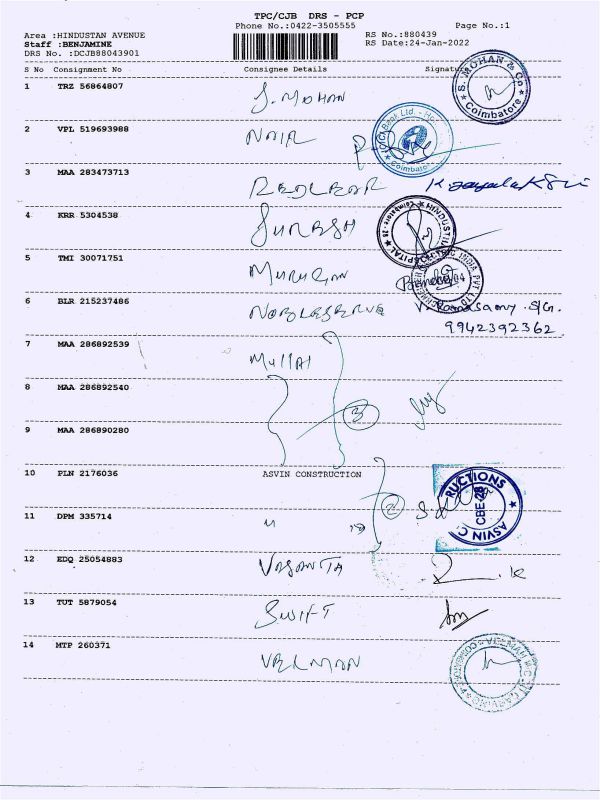 TPC/CJB DRS - PCP
Phone No.:0422-3505555 Page No.:1
Area :HINDUSTAN AVENUE RS No.:880439
Staff :BENJAMINE RS Date:24-Jan-2022
DRS No. :DCJB88043901
S No Consignment No Consignee Details Signature
1 TRZ 56864807 S. MOHAN
S. MOHAN & Co
Coimbatore
2 VPL 519693988 NAIR
Bank Ltd.
Coimbatore
3 MAA 283473713 REDLEAF
4 KRR 5304538 SURESH
HOSPITAL
5 TMI 30071751 MURUGAN
INDIA PVT LTD
6 BLR 215237486 NOBLESERVE
9942392362
7 MAA 286892539 Mullai
8 MAA 286892540 3
9 MAA 286890280
10 PLN 2176036 ASVIN CONSTRUCTION
11 DPM 335714 " 2
RUCTIONS
CBE-28
ASVIN C
12 EDQ 25054883 VASANTA
13 TUT 5879054 SWIFT
14 MTP 260371 VELMAN